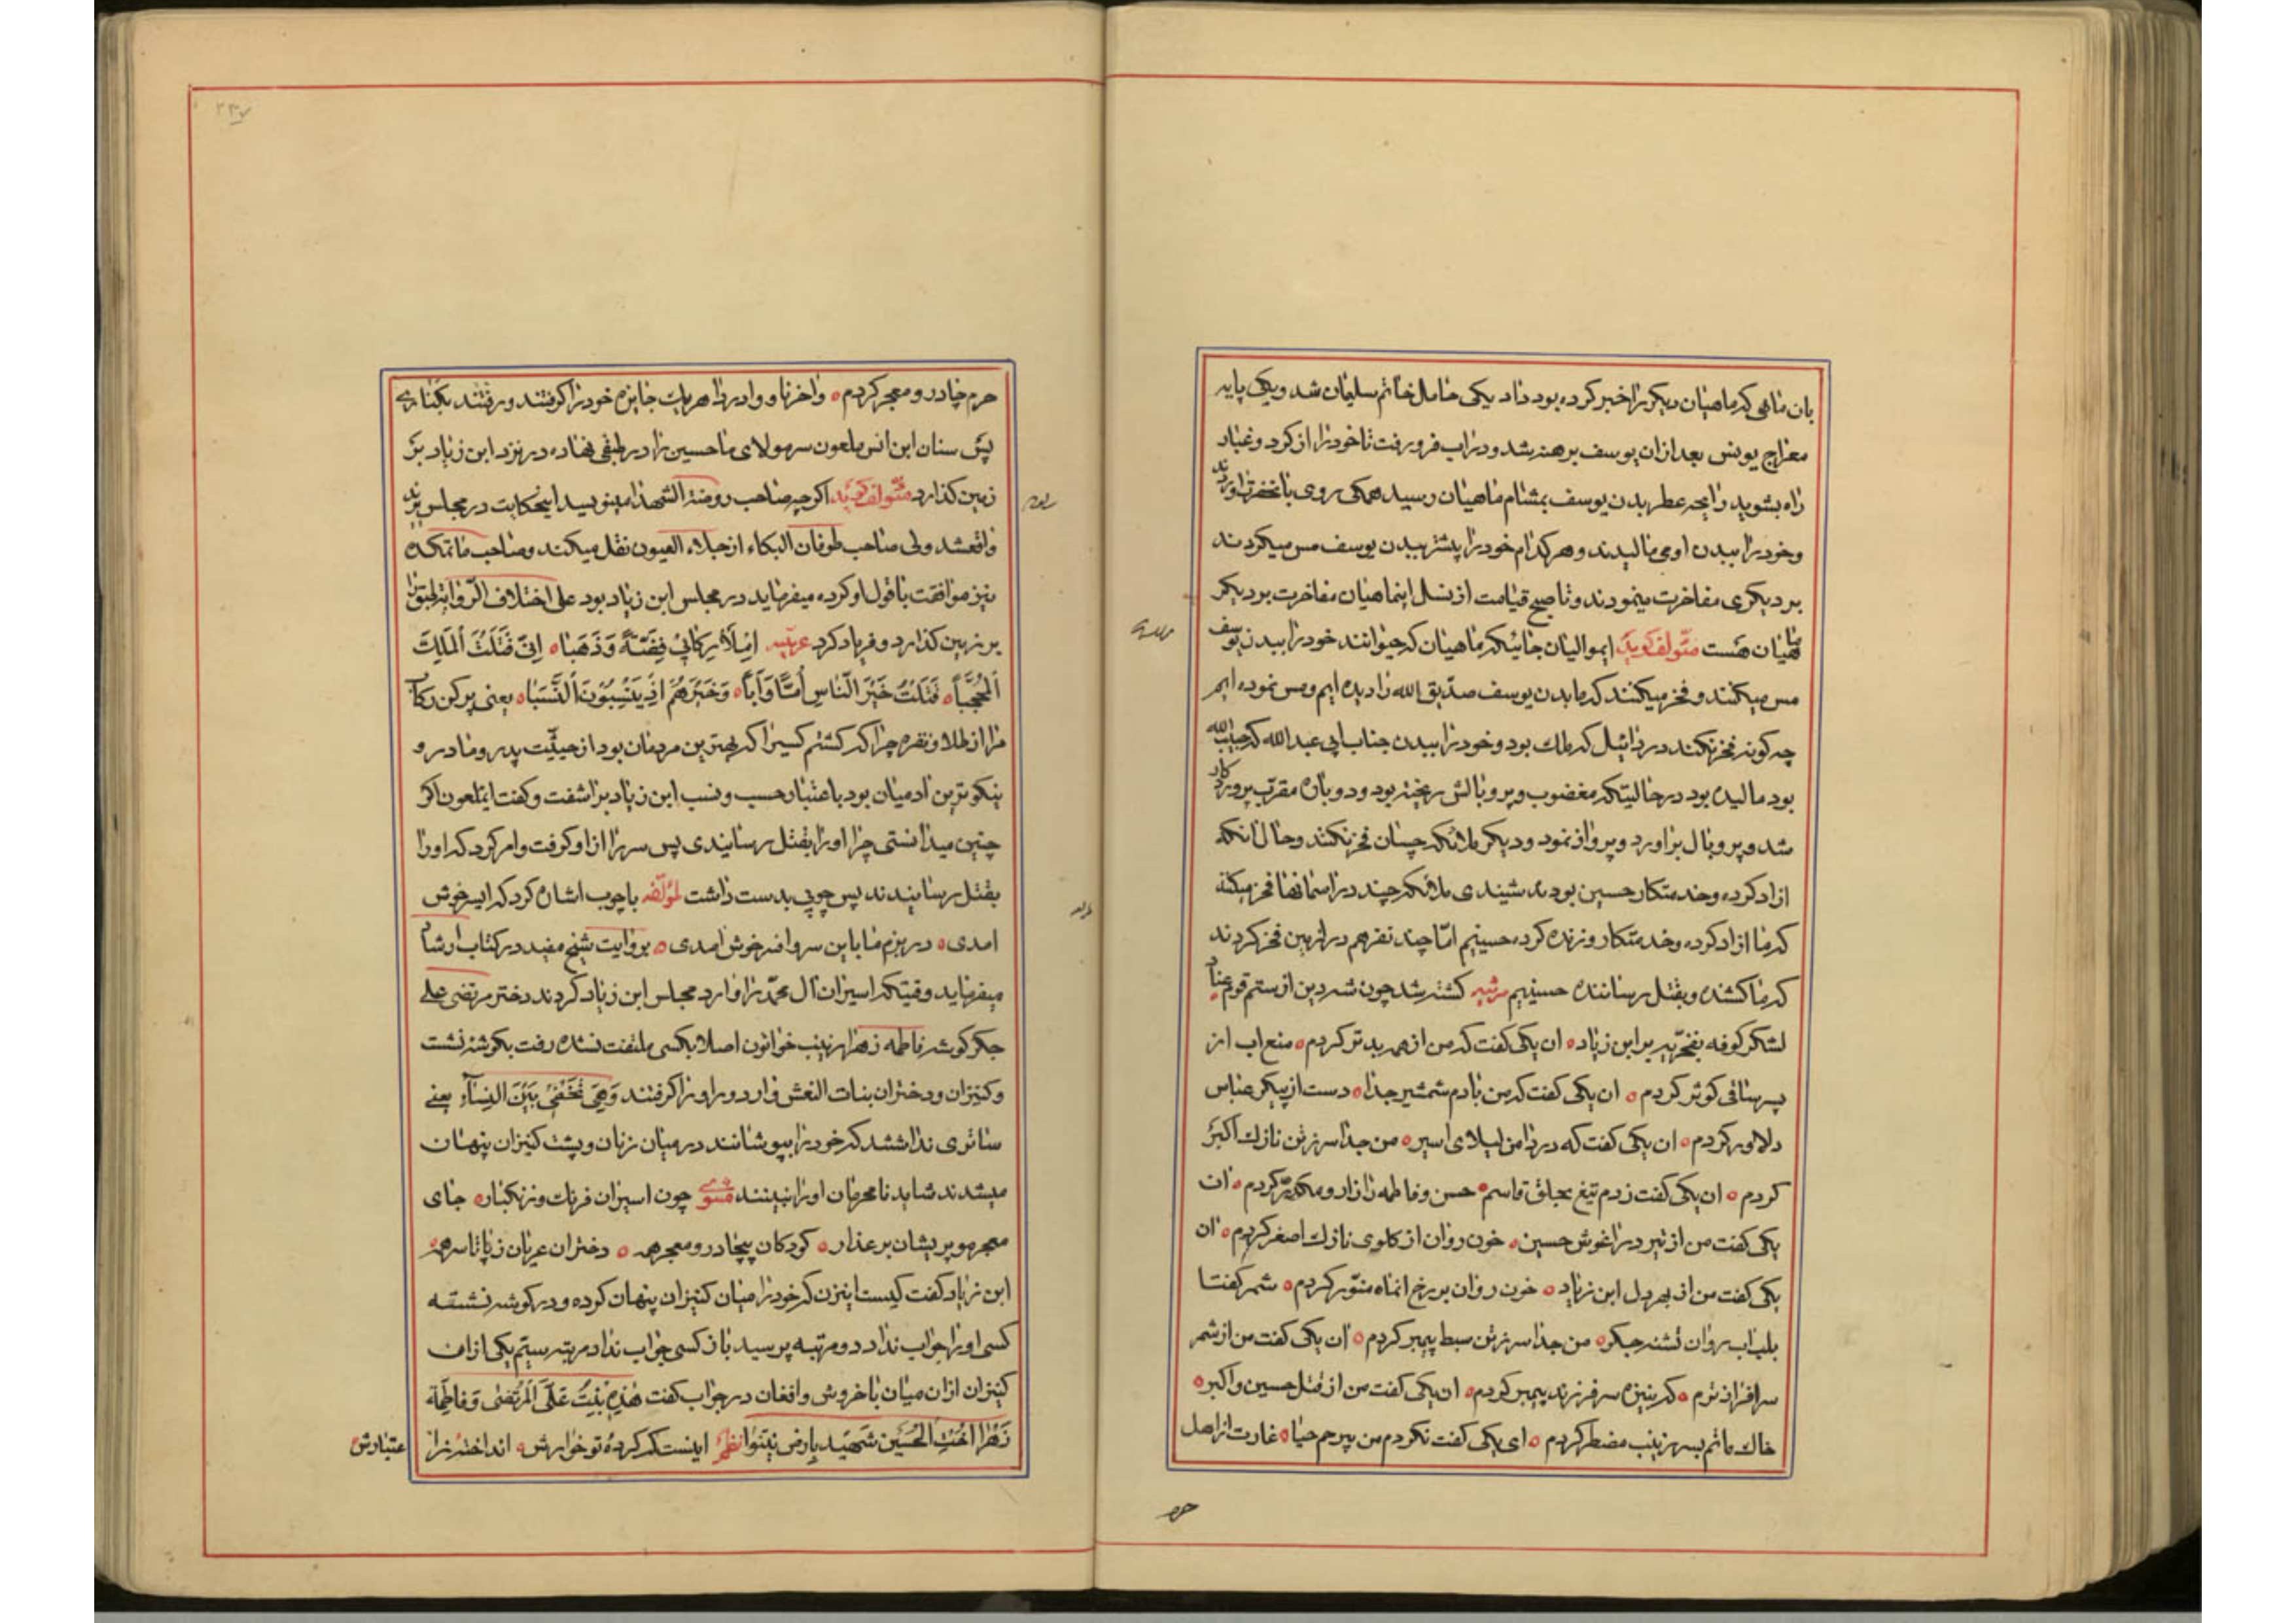 بان ماهی که ماهیان دیگر را خبر کرده بود داد یکی حامل خاتم سلیمان شد و یکی پایه
معراج یونس بعد از ان یوسف برهنه شد و در اب فرو رفت تا خود را از کرد و غبار
راه بشوید رایحه عطر بدن یوسف بمشام ماهیان رسید همکی روی بانحضرت اوردند
وخود را ببدن او می مالیدند و هر کدام خود را پیشتر ببدن یوسف مس میکردند
بر دیکری مفاخرت مینمودند و تا صبح قیامت از نسل اینماهیان مفاخرت بر دیکر
ماهیان هست مؤلف کوید ایموالیان جائیکه ماهیان که حیوانند خود را ببدن یوسف
مس میکنند و فخر میکنند که ما بدن یوسف صدّیق الله را دیده ایم و مس نموده ایم
چه کونه فخر نکند دردائیل که ملك بود و خود را ببدن جناب ابی عبد الله که حبیب الله
بود مالیده بود در حالیتکه مغضوب و پر و بالش ریخته بود و دوباره مقرّب پروردکار
شد و پر و بال براورد و پرواز نمود و دیکر ملائکه چسان فخر نکنند و حال انکه
ازاد کرده و خدمتکار حسین بودند شیندی ملائکه چند در اسمانها فخر میکنند
که ما ازاد کرده و خدمتکار و زنده کرده حسینیم امّا چند نفر هم در زمین فخر کردند
که ما کشنده و بقتل رساننده حسینیم مرثیه کشته شد چون شه دین از ستم قوم عناد
لشکر کوفه بفخریّه بر ابن زیاد ان یکی کفت که من از همه بدتر کردم منع اب از
پسر ساقی کوثر کردم ان یکی کفت که من با دم شمشیر جدا دست از پیکر عباس
دلاور کردم ان یکی کفت که در دامن لیلای اسیر من جدا سر ز تن نازك اکبر
کردم ان یکی کفت زدم تیغ بحلق قاسم حسن و فاطمه را زار و مکدّر کردم ان
یکی کفت من از تیر در اغوش حسین خون روان از کلوی نازك اصغر کردم ان
یکی کفت من از بهر دل ابن زیاد خون روان بر رخ انماه منوّر کردم شمر کفتا
بلب اب روان تشنه جکر من جدا سر ز تن سبط پیمبر کردم ان یکی کفت من از شمر
سرافراز ترم که بنیزه سر فرزند پیمبر کردم ان یکی کفت من از قتل حسین و اکبر
خاك ماتم بسر زینب مضطر کردم ای یکی کفت نکردم من بیرحم حیا غارت از اهل
حرم
حرم چادر و معجر کردم واخرنا و وادردا هر یك جایزه خود را کرفتند و رفتند بکناری
پس سنان ابن انس ملعون سر مولای ما حسین را در طبقی نهاده در نزد ابن زیاد بر
زمین کذارد مؤلف کوید اکر چه صاحب روضة الشهدا مینویسد اینحکایت در مجلس یزید
واقعشد ولی صاحب طوفان البکاء از جلاء العیون نقل میکند و صاحب ماتمکده
نیز موافقت با قول او کرده میفرماید در مجلس ابن زیاد بود علی اختلاف الروایة
بر زمین کذارد و فریاد کرد عربیّه اِملَأ رِکابی فِضَّةً وَذَهَبا اِنّی قَتَلتُ المَلِكَ
المُحَجَّبا قَتَلتُ خَیرَ النّاسِ اُمّاً وَاَباً وَخَیرَهُم اِذ یَنسِبُونَ النَّسَبا یعنی پر کن رکاب
مرا از طلا و نقره چرا که کشتم کسیرا که بهترین مردمان بود از حیثیّت پدر و مادر و
نیکوترین ادمیان بود باعتبار حسب و نسب ابن زیاد براشفت و کفت ایملعون اکر
چنین میدانستی چرا او را بقتل رسانیدی پس سر را از او کرفت و امر کرد که او را
بقتل رسانیدند پس چوبی بدست داشت لمؤلفه با چوب اشاره کرد که ایسر خوش
امدی در بزم ما باین سر و افسر خوش امدی بروایت شیخ مفید در کتاب ارشاد
میفرماید وقتیکه اسیران ال محمّد را وارد مجلس ابن زیاد کردند دختر مرتضی علی
جکر کوشه فاطمه زهرا زینب خواتون اصلا بکسی ملتفت نشده رفت بکوشه نشست
و کنیزان و دختران بنات النعش وار دور او را کرفتند وَهِیَ تَخَفّیٰ بَینَ النِساءِ یعنی
ساتری نداشتند که خود را بپوشانند در میان زنان و پشت کنیزان پنهان
میشدند شاید نامحرمان او را نبینند مثنوی چون اسیران فرنك و زنکبار جای
معجر مو پریشان بر عذار کودکان بیچادر و معجر همه دختران عریان ز پا تا سر همه
ابن زیاد کفت کیست اینزن که خود را میان کنیزان پنهان کرده و در کوشه نشسته
کسی او را جواب نداد دو مرتبه پرسید باز کسی جواب نداد مرتبه سیّم یکی از ان
کنیزان از ان میان با خروش و افغان در جواب کفت هٰذِهِ بِنتُ عَلیّ المُرتَضیٰ وَفاطِمَة
زَهرا اُختِ الحُسَین شَهید بِارض نَینَوا نظم اینست که کرده تو خوارش انداخته ز
عتبارش